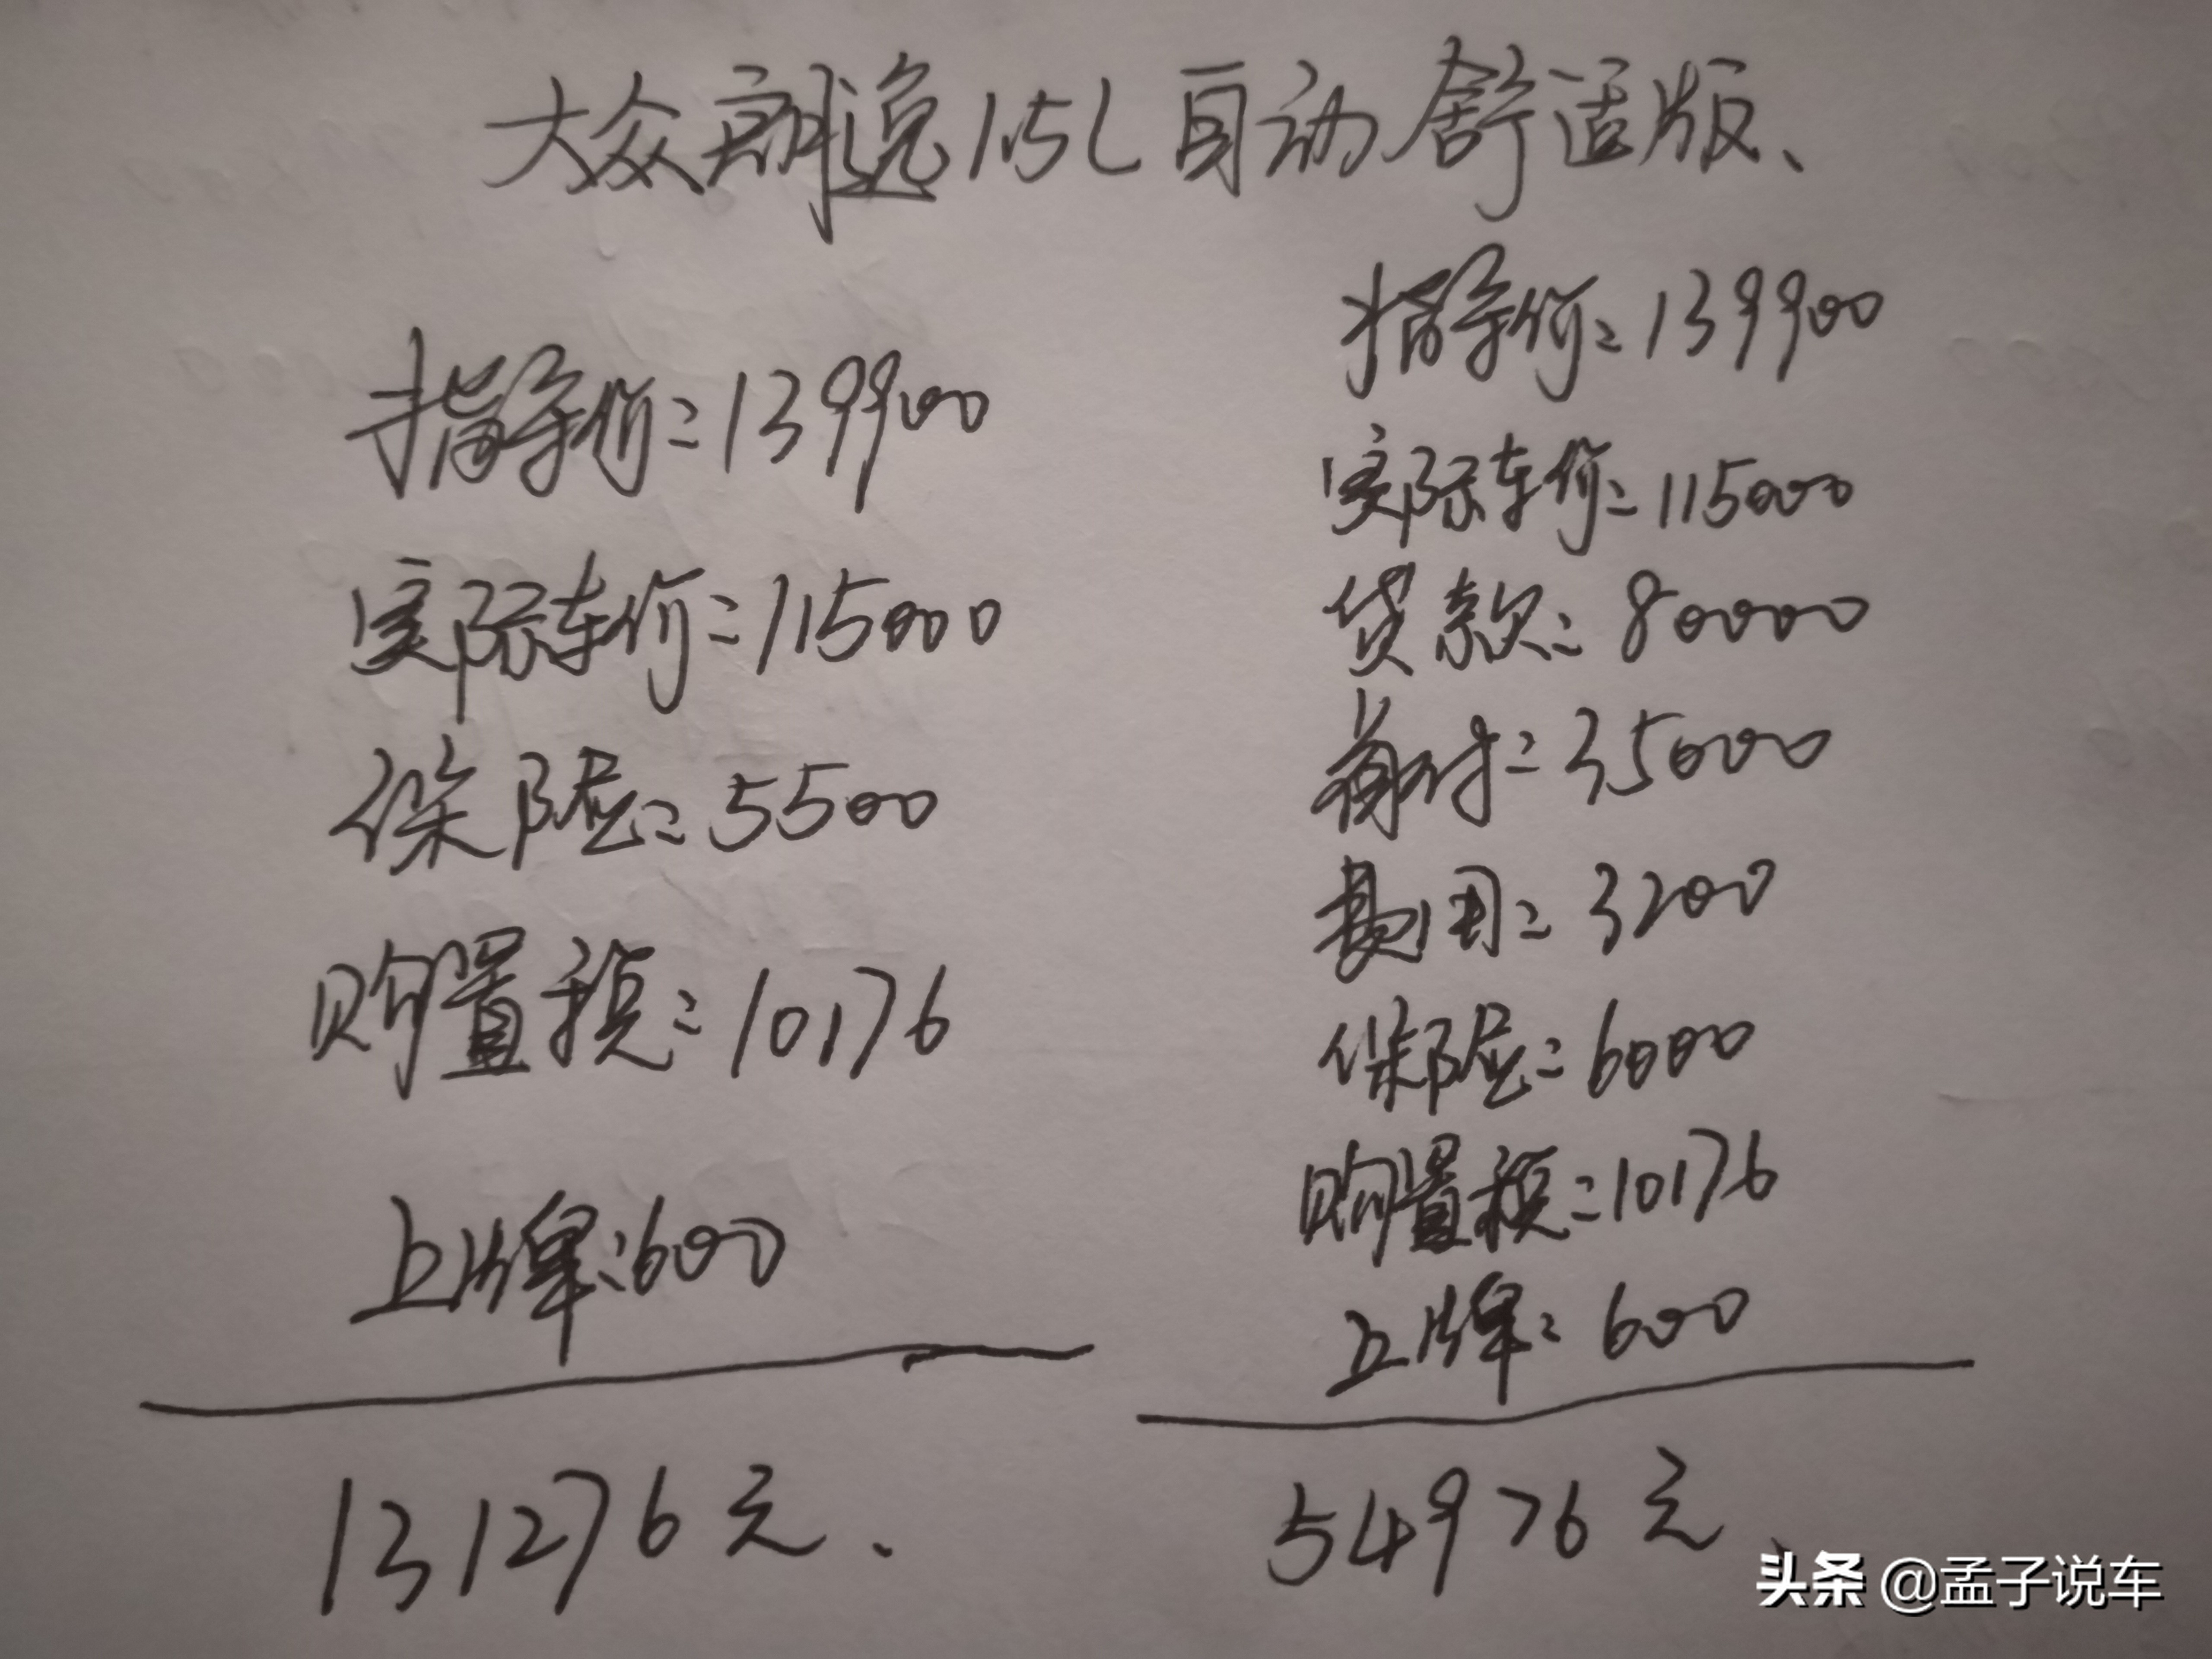 大众朗逸1.5L自动舒适版、
指导价:139900
实际车价:115000
保险:5500
购置税:10176
上牌:600
131276元.
指导价:139900
实际车价:115000
贷款:80000
首付:35000
费用:3200
保险:6000
购置税:10176
上牌:600
54976元、
头条 @孟子说车